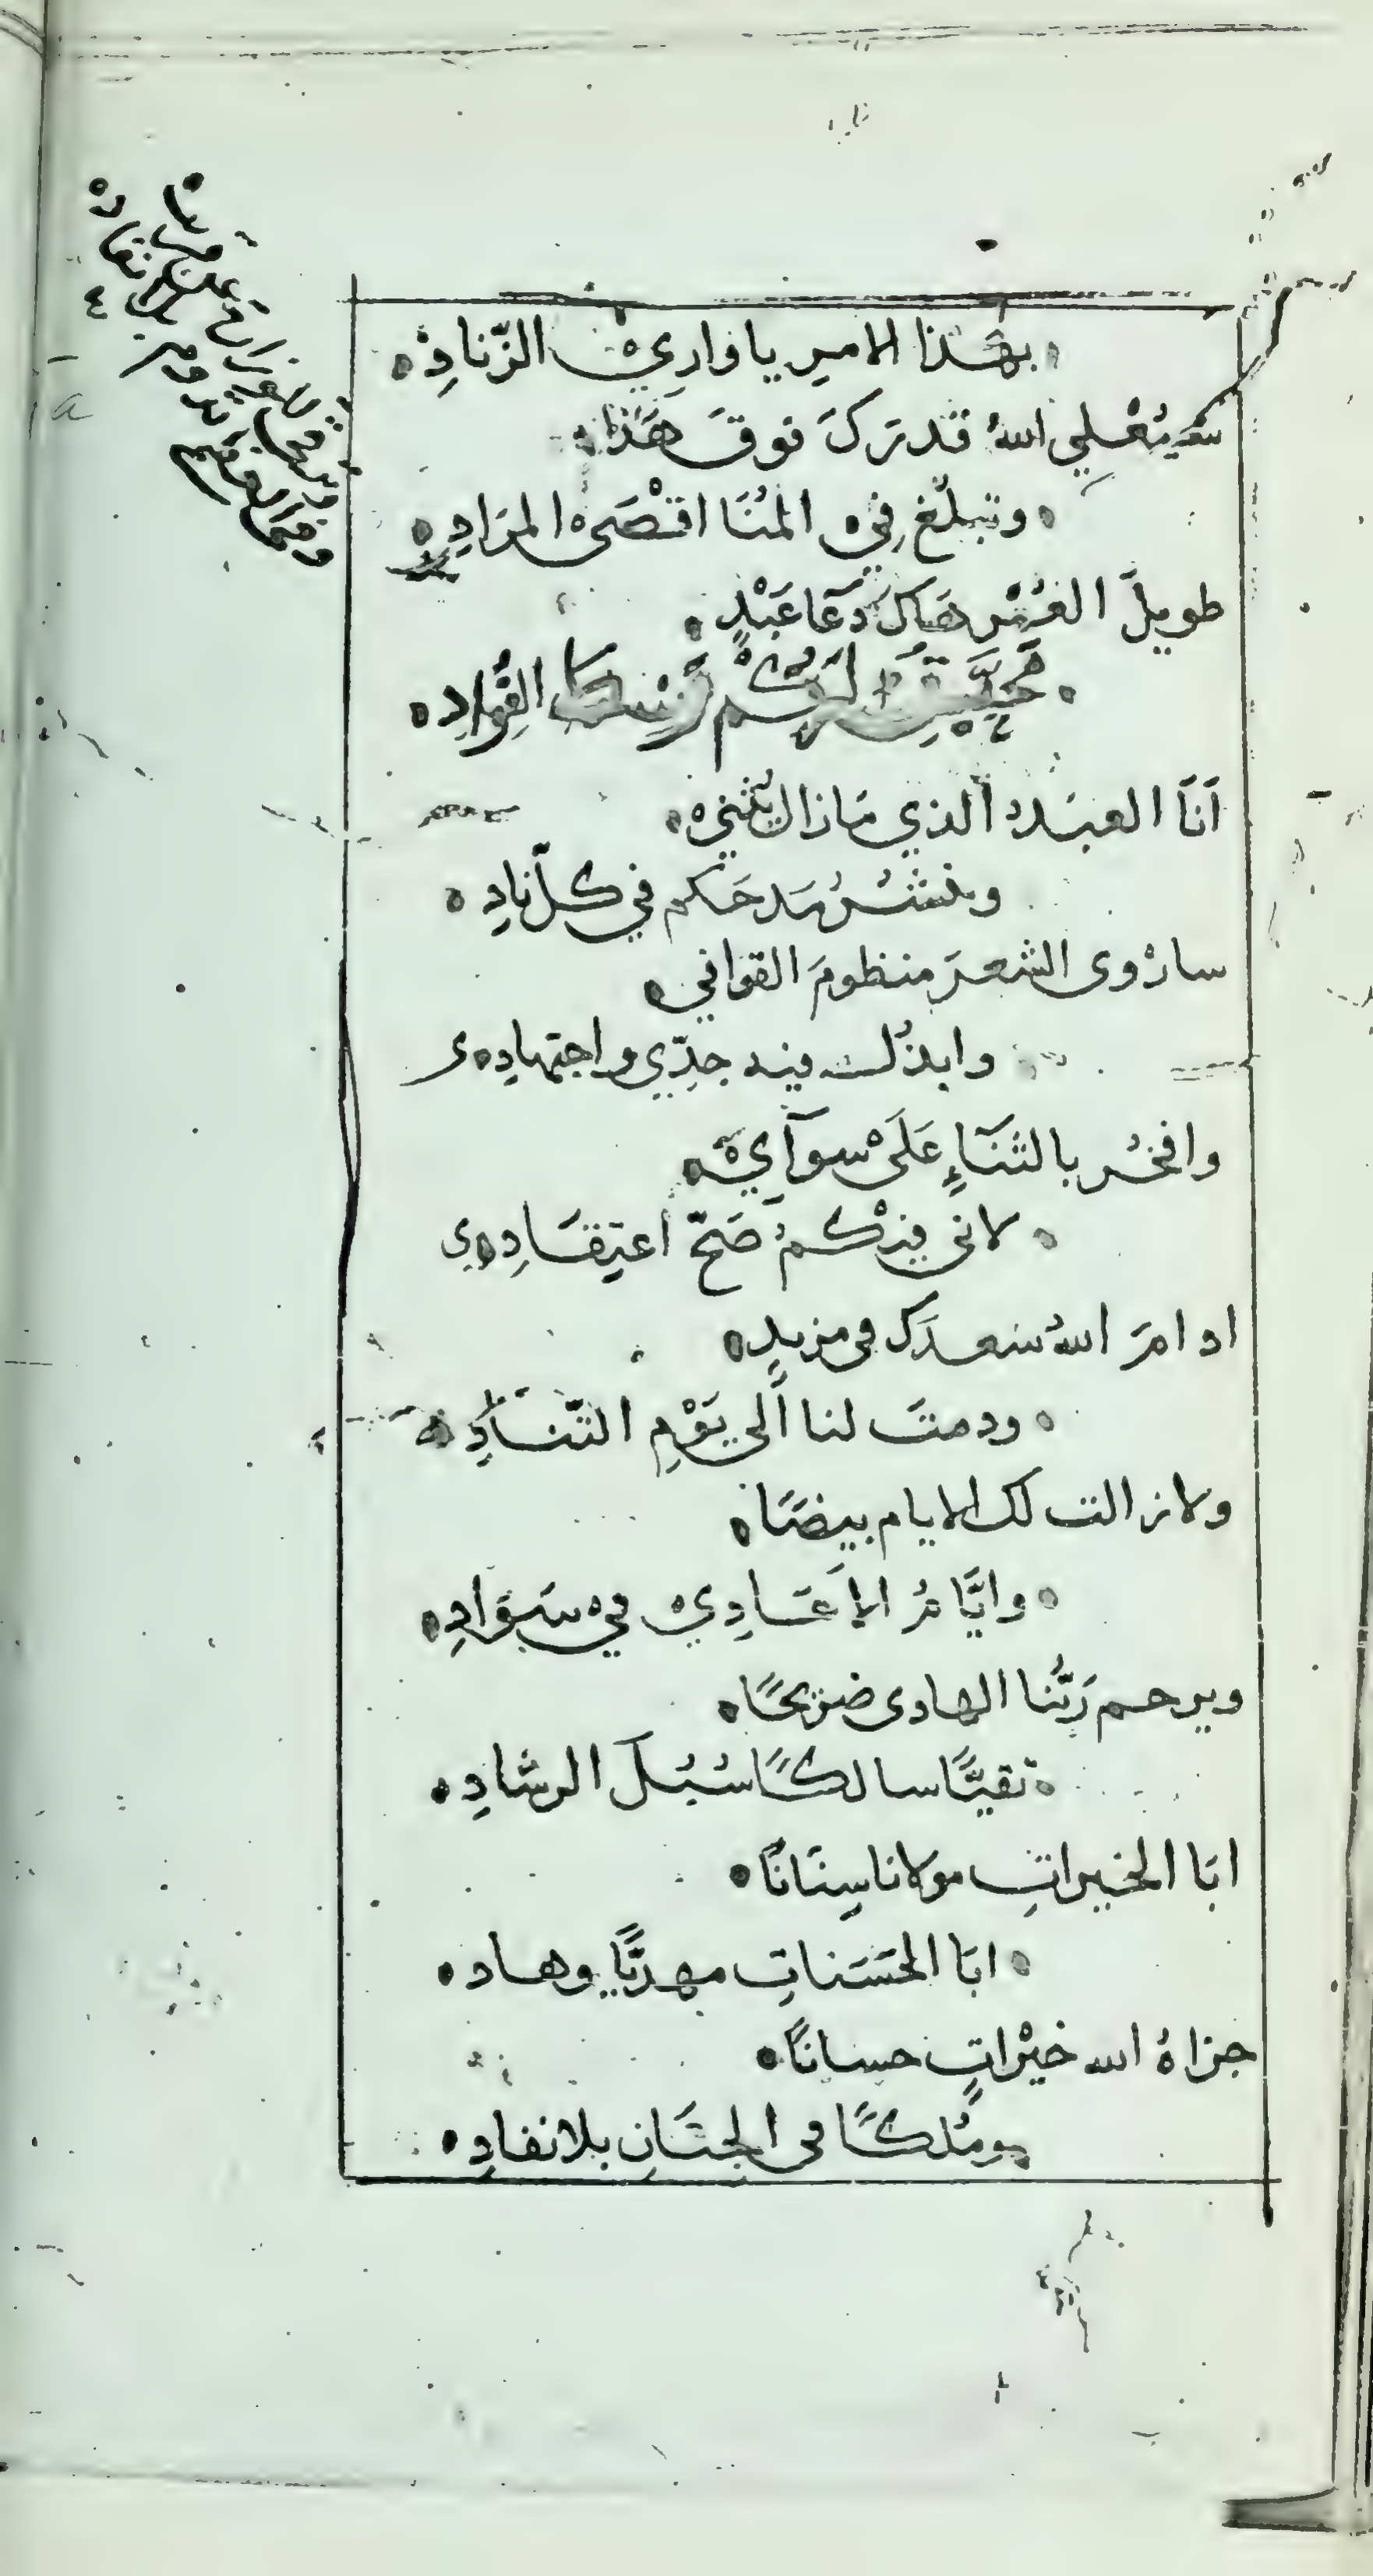 بهَذا الامير يا وَارِيْ الزّنادِ
سَيُعْلِي اللهُ قدرَكَ فوقَ هَذا
وتبلُغ فِي المُنَا اقْصَى المرَادِ
طويلَ العُمْرِ هَاكَ دَعَا عَبْدٍ
لكُم الفُوَادِ
اَنَا العبدُ الذي مَا زال يُثني
وينشُرُ مَدحَكم في كلّ نادِ
سارْوى الشعرَ منظومَ القوافي
وابذُل فيه جِدّي واجتهادِى
وافخُر بالثنَاءِ عَلَى سوَآيْ
لانى فيْكمُ صَحّ اعتِقَادِي
ادامَ اللهُ سَعدَكَ فى مزيدٍ
ودمتَ لنا اَلى يَوْمِ التّنَادِ
ولا زالت لك الايام بيضًا
وايَّامُ الاَعَادِيْ فيْ سَوَادِ
ويرحم رَبُّنا الهادى ضريحًا
تقيًّا سالكًا سُبُلَ الرشادِ
ابَا الخيراتِ مولانا سِنَانًا
ابَا الحَسَناتِ مهديًّا وهاد
جزاهُ الله خيْراتٍ حسانًا
ومُلكًا فى الجنَانِ بلا نفادِ